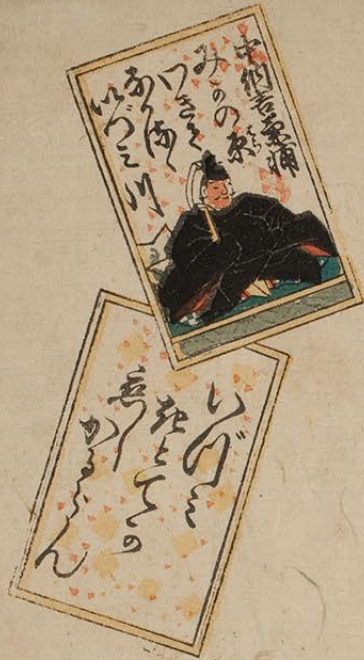 中納言兼輔
みかの原
わきて
ながるゝ
いづミ川
いつミ
きとてか
恋し
かるらん